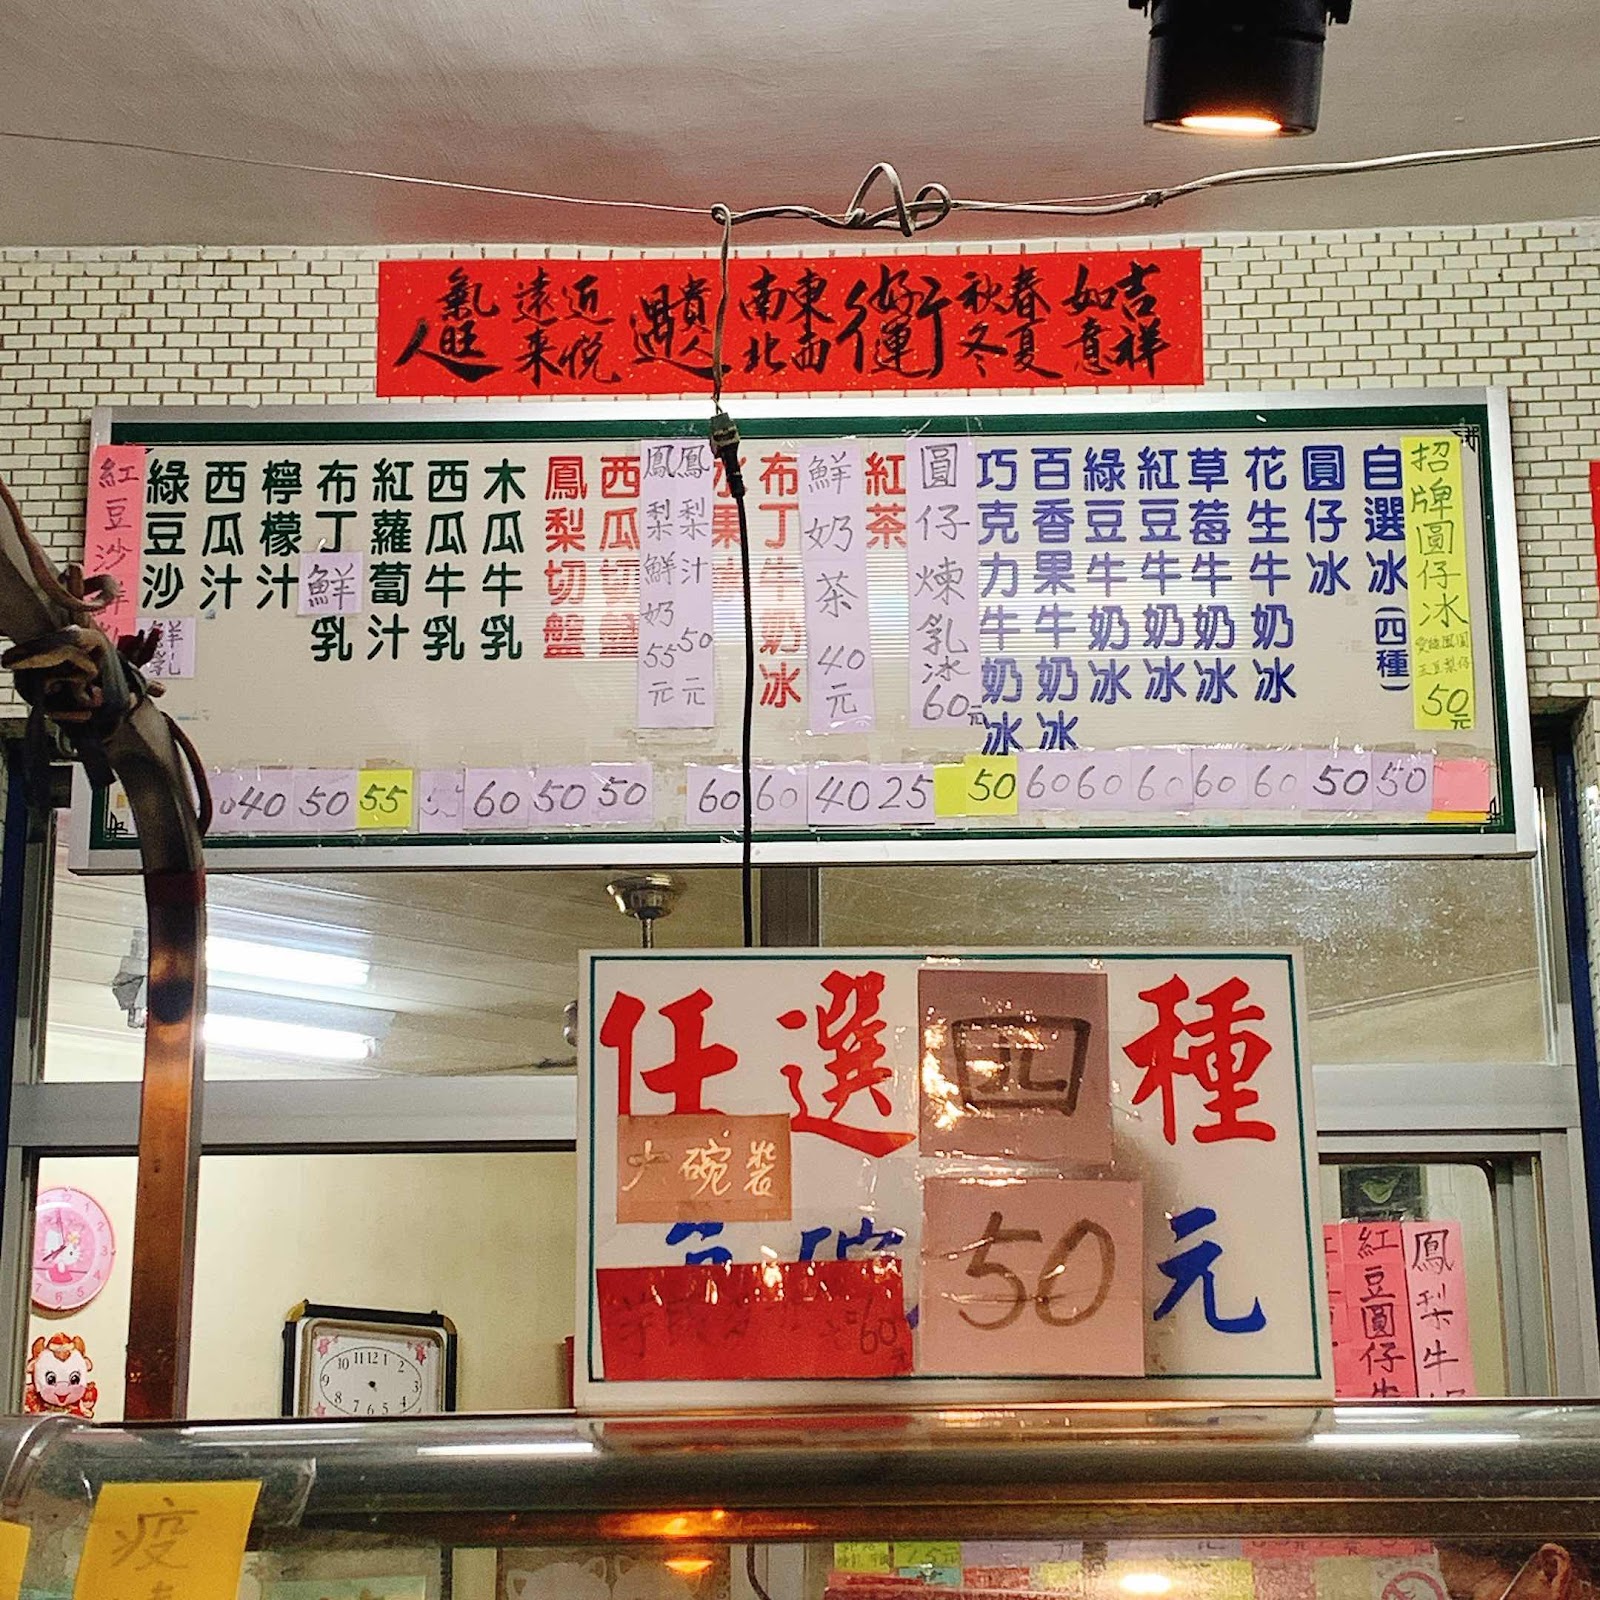 吉祥如意 春夏秋冬 行好運 東西南北 遇貴人 近悅遠來 人氣旺
招牌圓仔冰
50元
自選冰(四種)
圓仔冰
花生牛奶冰
草莓牛奶冰
紅豆牛奶冰
綠豆牛奶冰
百香果牛奶冰
巧克力牛奶冰
圓仔煉乳冰60元
紅茶
鮮奶茶40元
布丁牛奶冰
水果
鳳梨汁50元
鳳梨鮮奶55元
西瓜切盤
鳳梨切盤
木瓜牛乳
西瓜牛乳
紅蘿蔔汁
布丁鮮乳
檸檬汁
西瓜汁
綠豆沙
鮮乳
紅豆沙
40 50 55 60 50 50 60 60 40 25 50 60 60 60 60 60 50 50
任選四種
大碗裝
50元
60元
鳳梨牛
紅豆圓仔牛
10 11 12 1 2 3 5 6 7 8 9
疫
15元